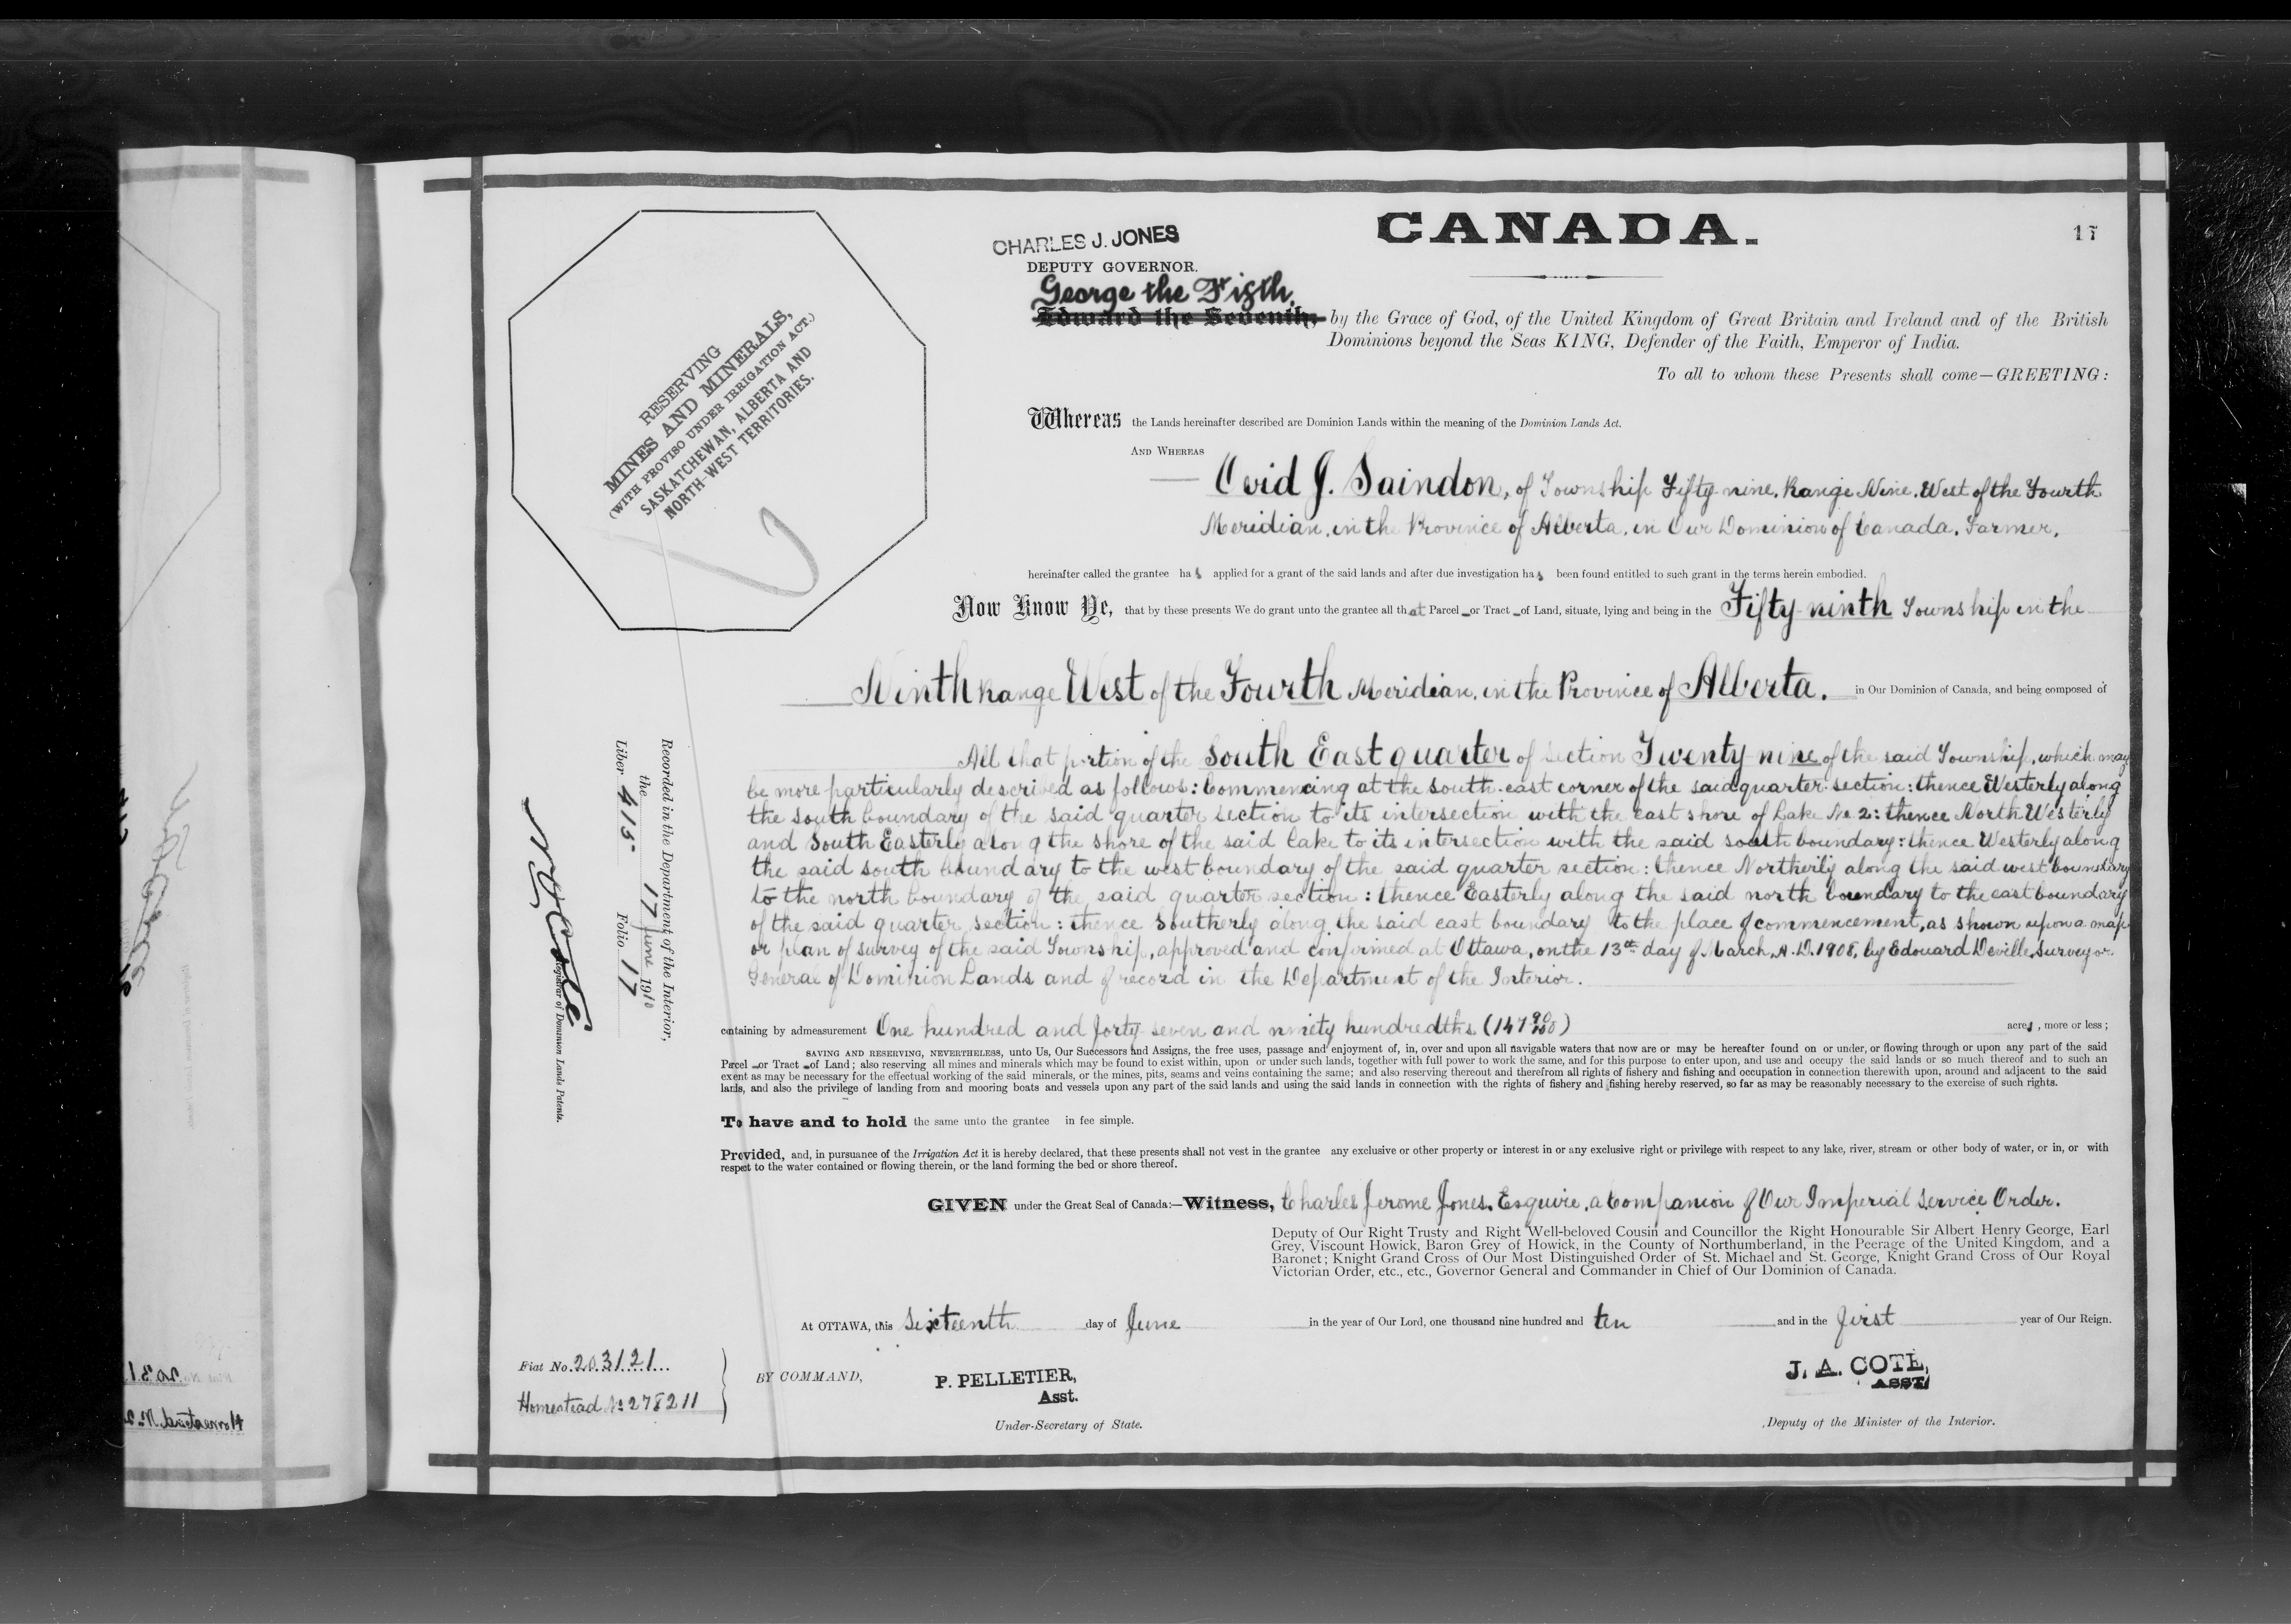 CANADA.
17
CHARLES J. JONES
DEPUTY GOVERNOR.
George the Fifth,
Edward the Seventh, by the Grace of God, of the United Kingdom of Great Britain and Ireland and of the British
Dominions beyond the Seas KING, Defender of the Faith, Emperor of India.
To all to whom these Presents shall come—GREETING:
RESERVING
MINES AND MINERALS,
(WITH PROVISO UNDER IRRIGATION ACT.)
SASKATCHEWAN, ALBERTA AND
NORTH-WEST TERRITORIES.
Whereas the Lands hereinafter described are Dominion Lands within the meaning of the Dominion Lands Act.
AND WHEREAS
Ovid J. Saindon, of Township Fifty-nine, Range Nine, West of the Fourth
Meridian, in the Province of Alberta, in Our Dominion of Canada, Farmer,
hereinafter called the grantee has applied for a grant of the said lands and after due investigation has been found entitled to such grant in the terms herein embodied.
Now Know Ye, that by these presents We do grant unto the grantee all that Parcel or Tract of Land, situate, lying and being in the Fifty-ninth Township in the
Ninth Range West of the Fourth Meridian, in the Province of Alberta. in Our Dominion of Canada, and being composed of
All that portion of the South East quarter of Section Twenty-nine of the said Township, which may
be more particularly described as follows: Commencing at the south-east corner of the said quarter section: thence Westerly along
the south boundary of the said quarter section to its intersection with the east shore of Lake No. 2: thence North Westerly
and South Easterly along the shore of the said Lake to its intersection with the said south boundary: thence Westerly along
the said south boundary to the west boundary of the said quarter section: thence Northerly along the said west boundary
to the north boundary of the said quarter section: thence Easterly along the said north boundary to the east boundary
of the said quarter section: thence Southerly along the said east boundary to the place of commencement, as shown upon a map
or plan of survey of the said Township, approved and confirmed at Ottawa, on the 13th day of March, A.D. 1908, by Edouard Deville, Surveyor
General of Dominion Lands and of record in the Department of the Interior.
containing by admeasurement One hundred and forty seven and ninety hundredths (147 90/100) acres, more or less;
SAVING AND RESERVING, NEVERTHELESS, unto Us, Our Successors and Assigns, the free uses, passage and enjoyment of, in, over and upon all navigable waters that now are or may be hereafter found on or under, or flowing through or upon any part of the said
Parcel or Tract of Land; also reserving all mines and minerals which may be found to exist within, upon or under such lands, together with full power to work the same, and for this purpose to enter upon, and use and occupy the said lands or so much thereof and to such an
extent as may be necessary for the effectual working of the said minerals, or the mines, pits, seams and veins containing the same; and also reserving thereout and therefrom all rights of fishery and fishing and occupation in connection therewith upon, around and adjacent to the said
lands, and also the privilege of landing from and mooring boats and vessels upon any part of the said lands and using the said lands in connection with the rights of fishery and fishing hereby reserved, so far as may be reasonably necessary to the exercise of such rights.
To have and to hold the same unto the grantee in fee simple.
Provided, and, in pursuance of the Irrigation Act it is hereby declared, that these presents shall not vest in the grantee any exclusive or other property or interest in or any exclusive right or privilege with respect to any lake, river, stream or other body of water, or in, or with
respect to the water contained or flowing therein, or the land forming the bed or shore thereof.
GIVEN under the Great Seal of Canada:—Witness, Charles Jerome Jones, Esquire, a Companion of Our Imperial Service Order.
Deputy of Our Right Trusty and Right Well-beloved Cousin and Councillor the Right Honourable Sir Albert Henry George, Earl
Grey, Viscount Howick, Baron Grey of Howick, in the County of Northumberland, in the Peerage of the United Kingdom, and a
Baronet; Knight Grand Cross of Our Most Distinguished Order of St. Michael and St. George, Knight Grand Cross of Our Royal
Victorian Order, etc., etc., Governor General and Commander in Chief of Our Dominion of Canada.
At OTTAWA, this Sixteenth day of June in the year of Our Lord, one thousand nine hundred and ten and in the first year of Our Reign.
BY COMMAND,
P. PELLETIER,
Asst.
Under-Secretary of State.
J. A. COTE,
ASST.
Deputy of the Minister of the Interior.
Fiat No. 203121
Homestead No 278211
Recorded in the Department of the Interior,
the 17 June 1910
Liber 415 Folio 17
Registrar of Dominion Lands Patents.